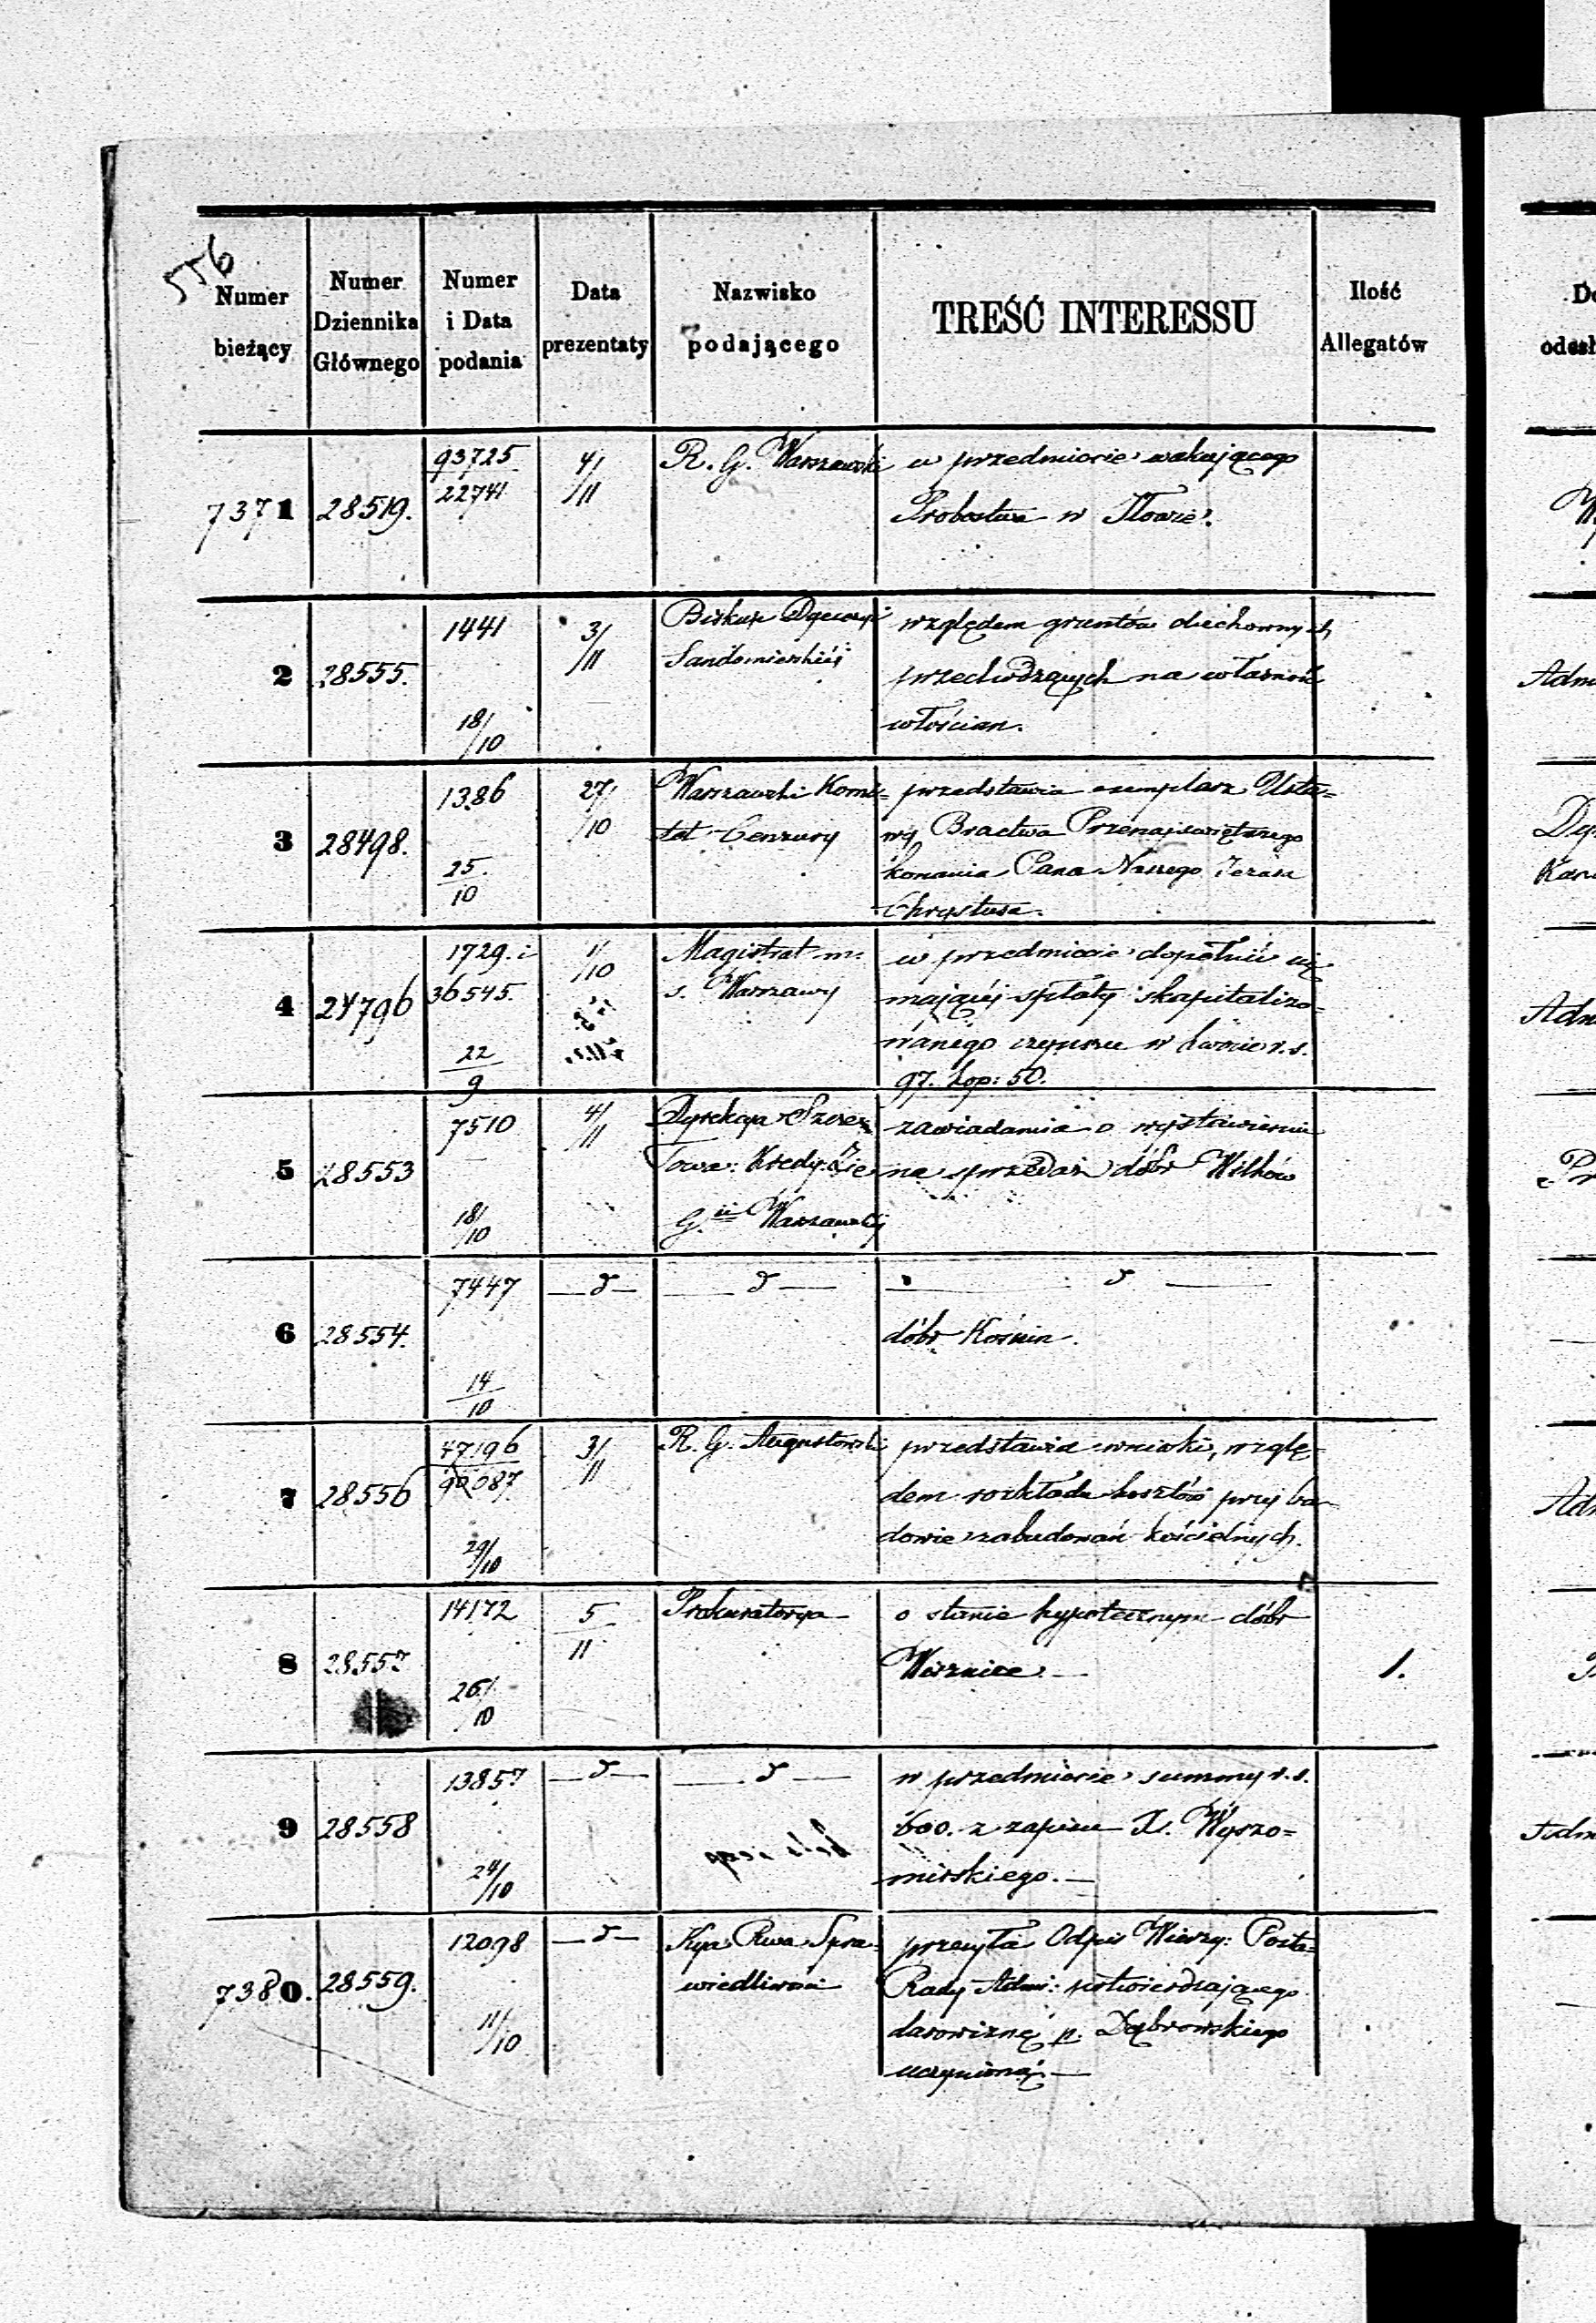 556
Numer bieżący
Numer Dziennika Głównego
Numer i Data podania
Data prezentaty
Nazwisko podającego
TREŚĆ INTERESSU
Ilość Allegatów
7371 28519. 93725 22741 4/11 R. G. Warszawski w przedmiocie wakującego
Probostwa w Iłowie.
2 28555. 1441 18/10 3/11 Biskup Dyecezyi względem gruntów duchownych
Sandomierskiéj przechodzących na własność
włościan.
3 28498. 1386 25/10 27/10 Warszawski Komi= przedstawia exemplarz Usta=
tet Cenzury wy Bractwa Przenajświętszego
konania Pana Naszego Jezusa
Chrystusa.
4 24796 1729. i 36545. 22/9 1/10 Magistrat m. w przedmiocie dopełnić się
s. Warszawy mającéj spłaty skapitalizo-
wanego czynszu w kwocie r. s.
97. kop: 50.
5 28553 7510 18/10 4/11 Dyrekcya Szcze: zawiadamia o wystawieniu
Towa: Kredy: Zie na sprzedaż dóbr Wilków
G.ii Warszawskiéj
6 28554. 7447 14/10 — d — — d — — d —
dóbr Kośmin.
7 28556 47196 90087 29/10 3/11 R. G. Augustowski przedstawia wnioski, wzglę-
dem rozkładu kosztów przy bu-
dowie zabudowań kościelnych.
8 28557 14172 26/10 5/11 Prokuratorya o stanie hypotecznym dóbr
Woźnice. — 1.
9 28558 13857 24/10 — d — — d — w przedmiocie summy r. s.
600. z zapisu X. Wyszo=
mirskiego. —
7380. 28559. 12098 11/10 — d — Kya Rwa Spra= przesyła Odpis Wierzy: Posta=
wiedliwości Rady Admi: potwierdzającego
darowiznę p. Dąbrowskiego
uczynioną. —